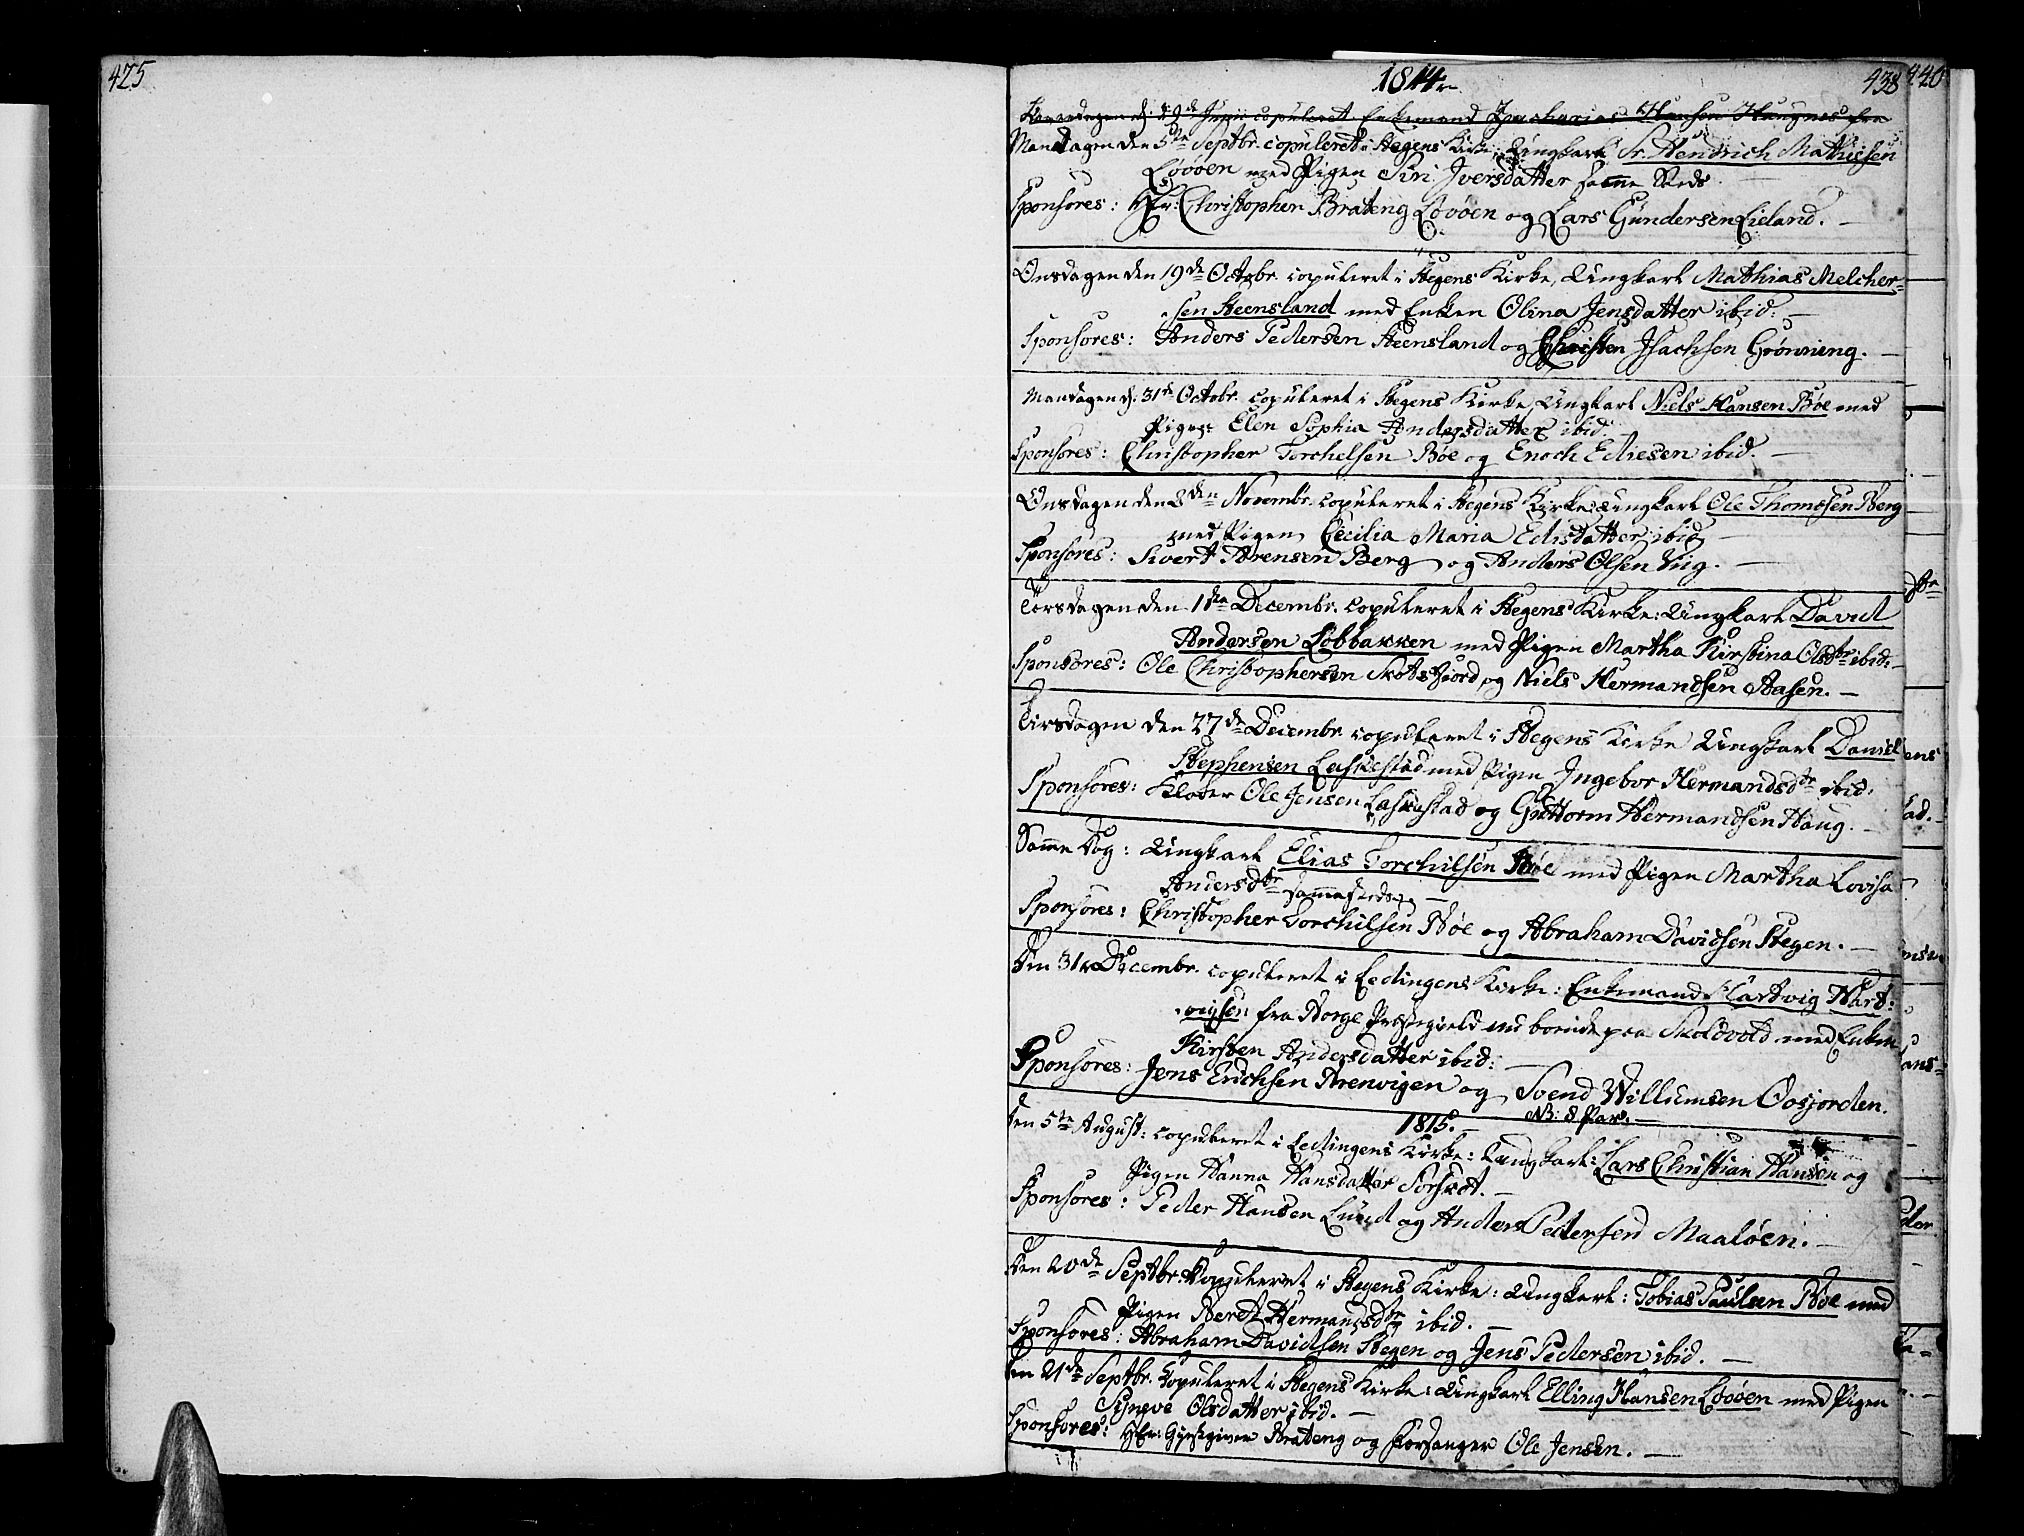 425
1814
438
440
den 29de Junii copuleret Enkemand Zacharias Hansen Haugnes fra
Mandagen den 5te Septbr. copuleret i Stegens Kirke: Ungkarl Sr. Hendrich Mathiesen
Løvøen med Pigen Siri Iversdatter samme Steds.
Sponsores: Hr: Christopher Brateng Løvøen og Lars Gundersen Lieland.
Onsdagen den 19de Octobr. copuleret i Stegens Kirke, Ungkarl Mathias Melcher-
sen Steensland med Enken Olina Jensdatter ibid:
Sponsores: Anders Pedersen Steensland og Christen Isachsen Grønnieng.
Mandagen d. 31te Octobr. copuleret i Stegens Kirke, Ungkarl Niels Hansen Bøe med
Pigen Elen Sophia Andersdatter ibid.
Sponsores: Christopher Torchelsen Bøe og Enoch Ediesen ibid.
Onsdagen den 8den Novembr. copuleret i Stegens Kirke: Ungkarl Ole Thomesen Berg
med Pigen Cecilia Maria Edisdatter ibid
Sponsores: Sivert Arensen Berg og Anders Olsen Viig.
Torsdagen den 1ste Decembr. copuleret i Stegens Kirke: Ungkarl David
Andersen Løbbakken med Pigen Martha Kirstina Olsdtr ibid:
Sponsores: Ole Christophersen Skotsfjord og Niels Hermandsen Aasen.
Tirsdagen den 27de Decembr. copuleret i Stegens Kirke Ungkarl Daniel
Stephensen Laskestad med Pigen Ingebor Hermandsdtr ibid.
Sponsores: Kloker Ole Jensen Laskestad og Guttorm Hermandsen Haug.
Samme Dag: Ungkarl Elias Torchilsen Bøe med Pigen Martha Lovisa
Andersdtr sammesteds
Sponsores: Christopher Torchilsen Bøe og Abraham Davidsen Stegen.
Den 31te Decembr. copuleret i Ledingens Kirke: Enkemand Hartvig Hart-
vigsen fra Borge Præstegield nu boende paa Skoldvold med Enken
Kirsten Andersdatter ibid:
Sponsores: Jens Erichsen Arenvigen og Svend Willumsen Oosjorden.
NB: 8 Par.
1815.
Den 5te August: copuleret i Ledingens Kirke: Ungkarl: Lars Christian Hansen og
Pigen Hanna Hansdatter Sørskot.
Sponsores: Peder Hansen Lund og Anders Pedersen Maaløen.
Den 20de Septbr. Kopuleret i Stegens Kirke: Ungkarl: Tobias Paulsen Bøe med
Pigen Berdt Hermansdtr ibid.
Sponsores: Abraham Davidsen Stegen og Jens Pedersen ibid.
Den 21de Septbr. Kopuleret i Stegens Kirke: Ungkarl Elling Hansen Løvøen med Pigen
Syneve Olsdatter ibid.
Sponsores: Hr: Giestgiver Brateng og Forsanger Ole Jensen.